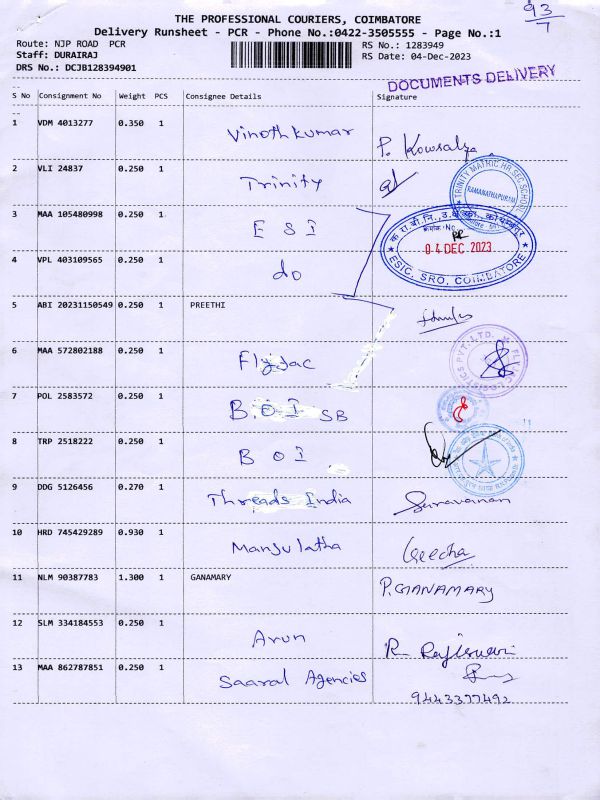 93
7
THE PROFESSIONAL COURIERS, COIMBATORE
Delivery Runsheet - PCR - Phone No.:0422-3505555 - Page No.:1
Route: NJP ROAD PCR
RS No.: 1283949
Staff: DURAIRAJ
RS Date: 04-Dec-2023
DRS No.: DCJB128394901
DOCUMENTS DELIVERY
S No Consignment No Weight PCS Consignee Details Signature
1 VDM 4013277 0.350 1 Vinothkumar P. Kowsalya
2 VLI 24837 0.250 1 Trinity
TRINITY MATRIC.HR.SEC.SCHOOL
RAMANATHAPURAM
3 MAA 105480998 0.250 1 E S I
04 DEC 2023
ESIC, SRO, COIMBATORE
4 VPL 403109565 0.250 1 do
5 ABI 20231150549 0.250 1 PREETHI
6 MAA 572802188 0.250 1 Flyjac
FLYJAC LOGISTICS PVT. LTD.
7 POL 2583572 0.250 1 B.O I SB
8 TRP 2518222 0.250 1 B O I
9 DDG 5126456 0.270 1 Threads India Saravanan
10 HRD 745429289 0.930 1 Manjulatha Geetha
11 NLM 90387783 1.300 1 GANAMARY P.GANAMARY
12 SLM 334184553 0.250 1 Arun R. Rajeswari
13 MAA 862787851 0.250 1 Saaral Agencies
9443377492